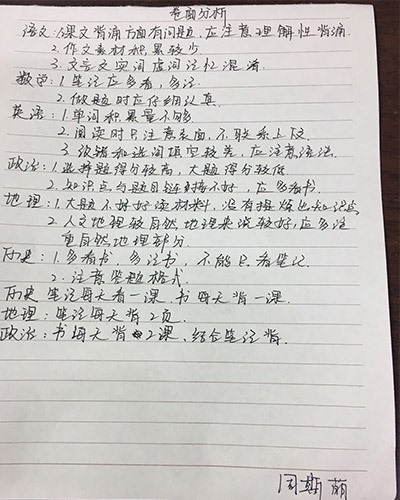 卷面分析
语文:1.课文背诵方面有问题,应注意理解性背诵
2.作文素材积累较少
3.文言文实词虚词记忆混淆
数学:1.笔记应多看,多记
2.做题时应仔细认真
英语:1.单词积累量不够
2.阅读时只注意表面,不联系上下文
3.改错和选词填空较差,应注意语法
政治:1.选择题得分较高,大题得分较低
2.知识点与题目链接不好,应多看书
地理:1.大题不好好读材料,没有提炼出知识点
2.人文地理较自然地理来说较好,应多注
重自然地理部分
历史:1.多看书,多记书,不能只看笔记
2.注意答题格式
历史 笔记每天看一课,书每天背一课
地理:笔记每天背2页
政治:书每天背2课,结合笔记背
周斯萌